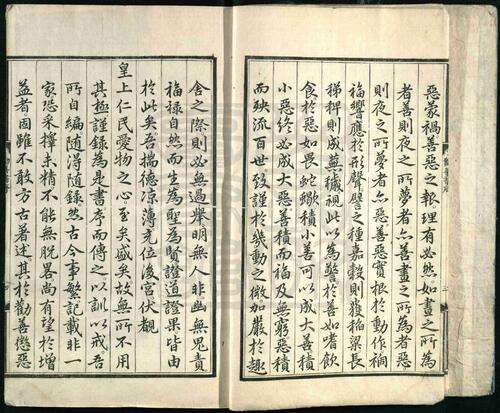 惡蒙禍善惡之報理有必然如晝之所為
者善則夜之所夢者亦善晝之所為者惡
則夜之所夢者亦惡善惡實根於動作禍
福響應於形聲譬之種嘉穀則獲稻粱長
稊稗則成蕪穢視此以為警於善如嗜飲
食於惡如畏蛇蠍積小善可以成大善積
小惡終必成大惡善積而福及無窮惡積
而殃流百世攷謹於幾動之微加嚴於趣
舍之際則必無過舉明無人非幽無鬼責
福祿自然而生為聖為賢證道證果皆由
於此矣吾揣德涼薄充位後宮伏覩
皇上仁民愛物之心至矣盛矣故無所不用
其極謹錄為是書序而傳之以訓以戒吾
所自編隨得隨錄然古今事繁記載非一
家恐采擇未精不能無脫畧尚有望於增
益者固雖不敢方古著述其於勸善懲惡